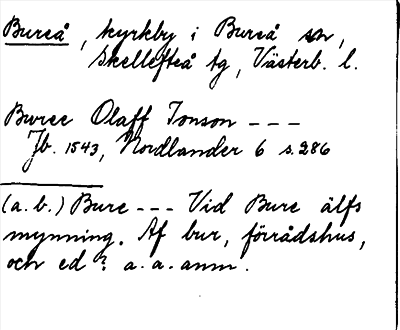 Bureå, kyrkby i Bureå sn,
Skellefteå tg, Västerb. l.
Buree Olaff Jonson ---
Jb. 1543, Nordlander 6 s. 286
(a. b.) Bure --- Vid Bure älfs
mynning. Af bur, förrådshus,
och ed? a. a. anm.